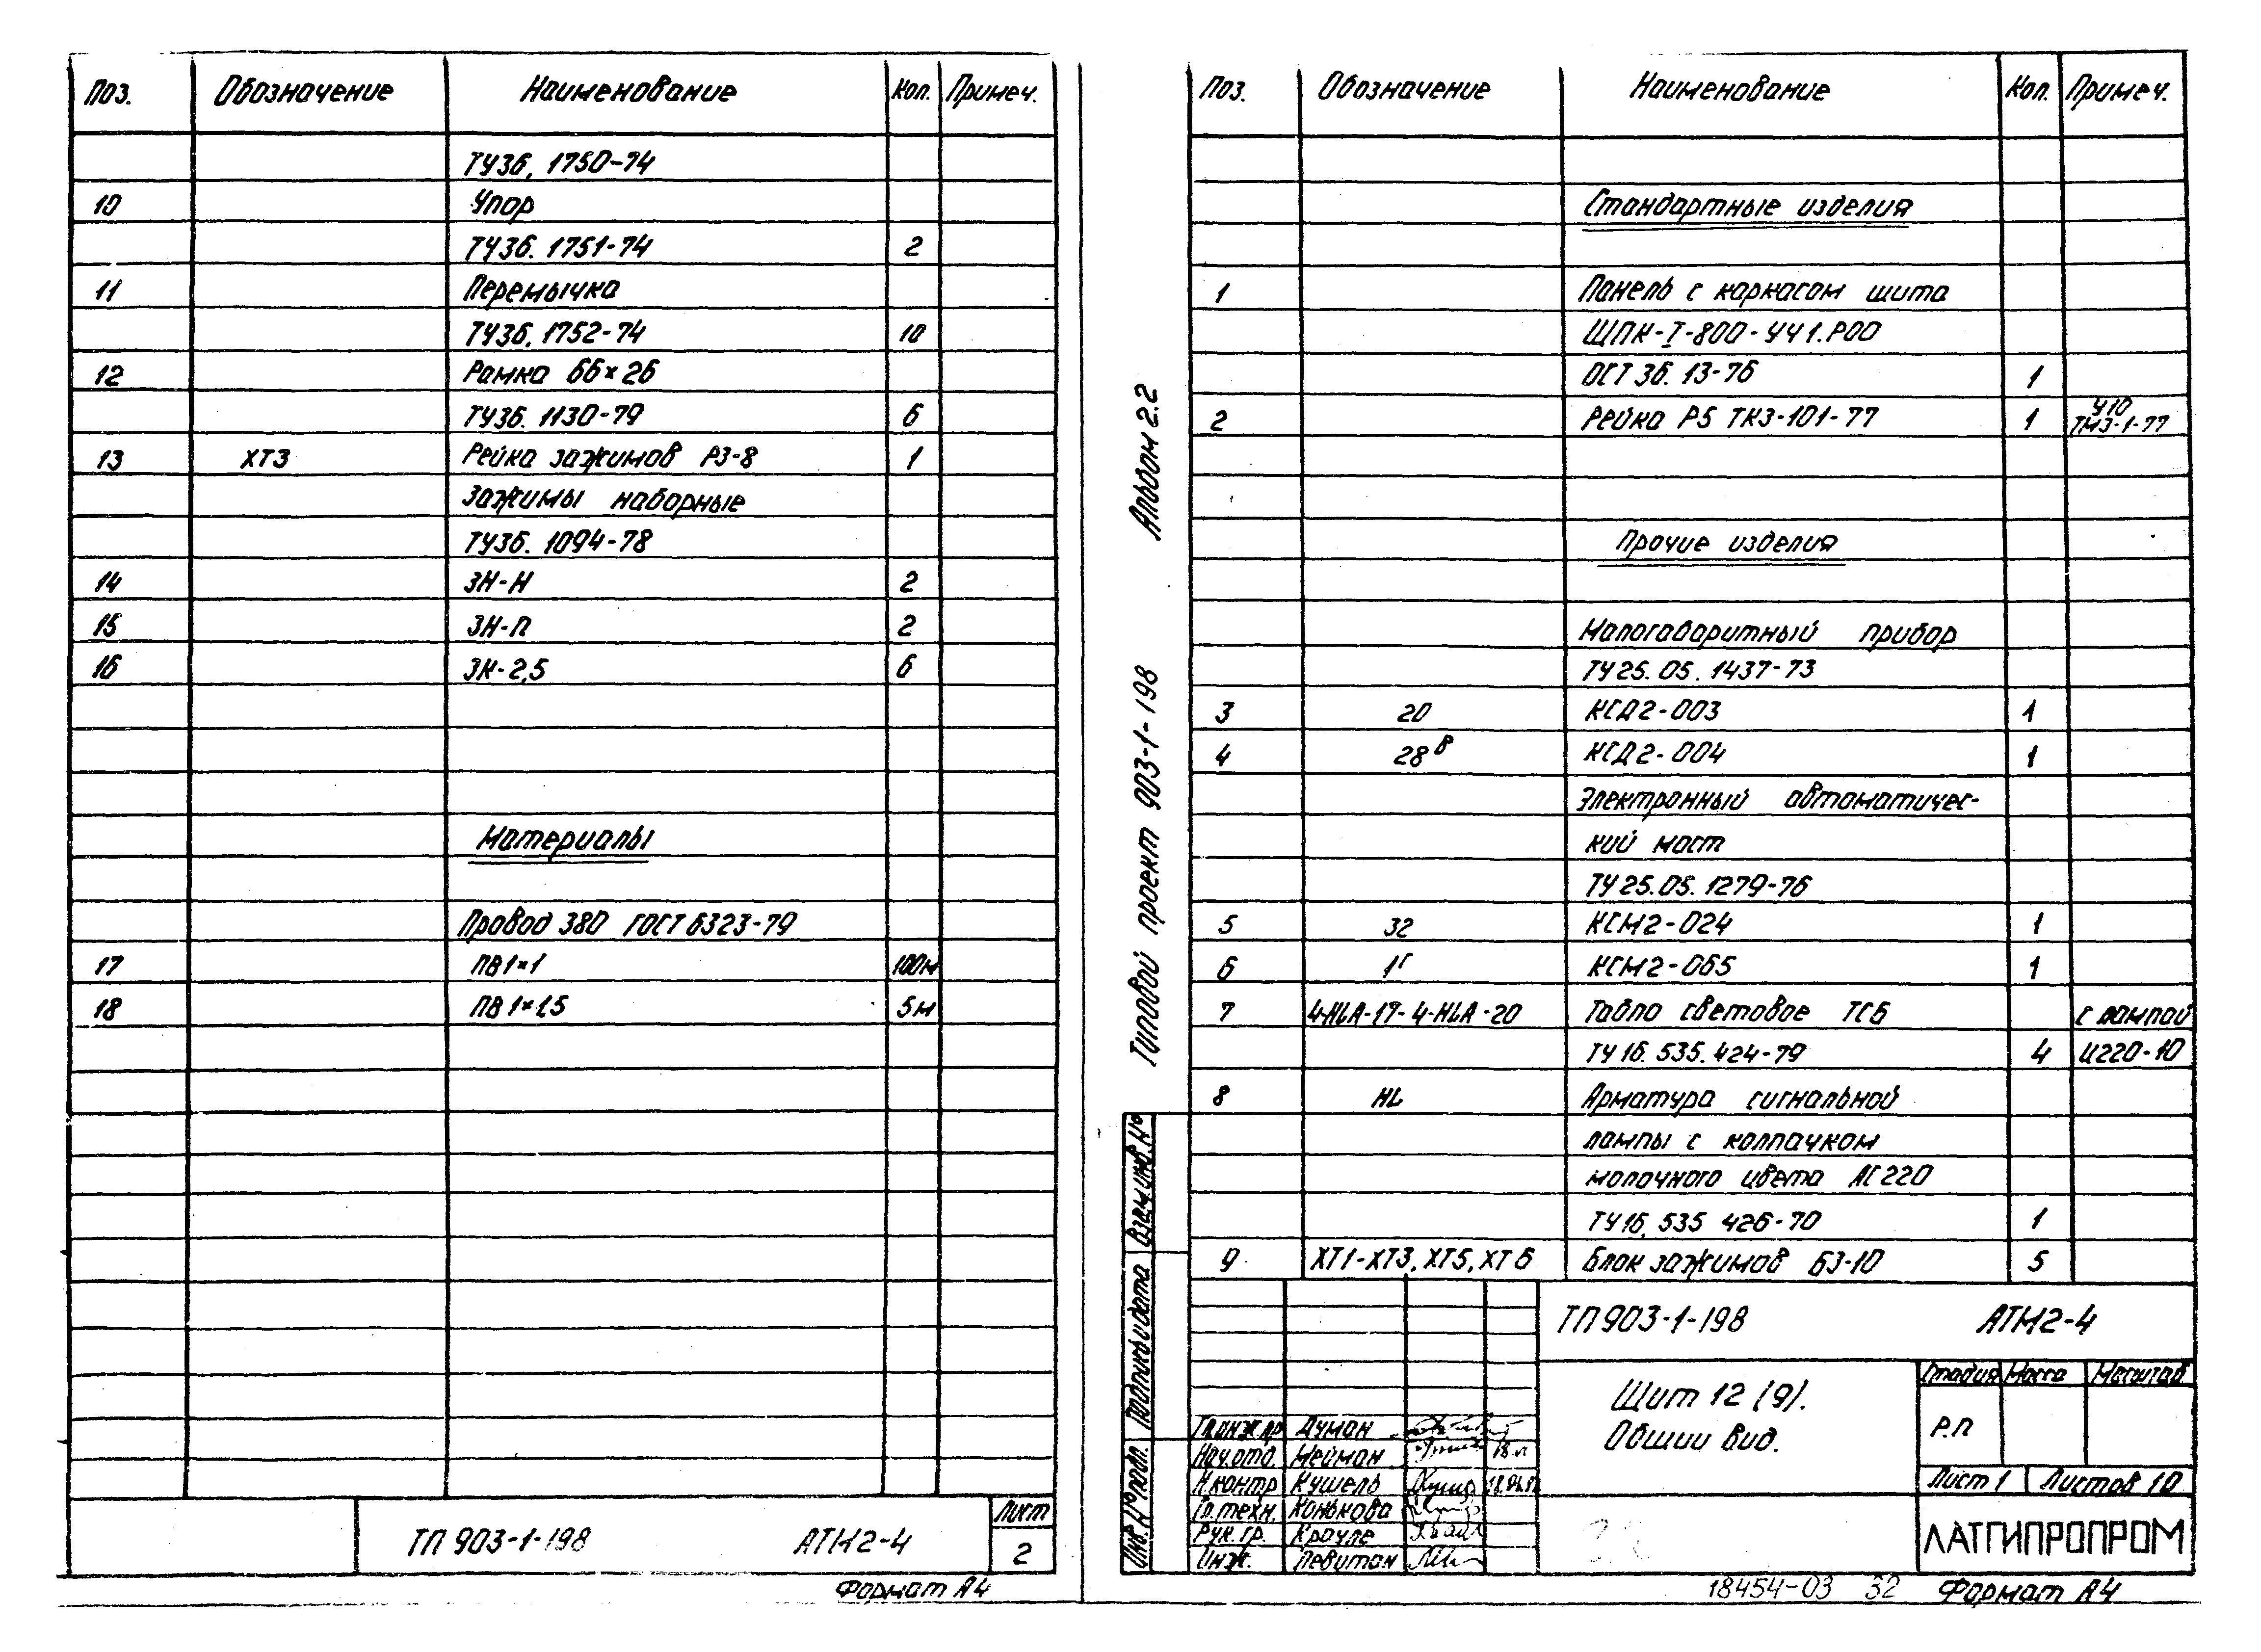 Поз. Обозначение Наименование Кол. Примеч.
ТУ36. 1750-74
10 Упор
ТУ36. 1751-74 2
11 Перемычка
ТУ36. 1752-74 10
12 Рамка 66×26
ТУ36. 1130-79 6
13 ХТ3 Рейка зажимов РЗ-8 1
Зажимы наборные
ТУ36. 1094-78
14 ЗН-Н 2
15 ЗН-П 2
16 ЗК-2,5 6
Материалы
Провод 380 ГОСТ 6323-79
17 ПВ 1×1 100м
18 ПВ 1×1,5 5м
ТП 903-1-198 АТМ2-4
Лист
2
Формат А4
Альбом 2.2
Типовой проект 903-1-198
Взам.инв.№
Подпись и дата
Инв.№ подл.
Поз. Обозначение Наименование Кол. Примеч.
Стандартные изделия
1 Панель с каркасом щита
ЩПК-I-800-УЧ1.Р00
ОСТ 36. 13-76 1
2 Рейка Р5 ТК3-101-77 1 У10
ТМ3-1-77
Прочие изделия
Малогабаритный прибор
ТУ 25. 05. 1437-73
3 20 КСД2-003 1
4 28в КСД2-004 1
Электронный автоматичес-
кий мост
ТУ 25.05. 1279-76
5 32 КСМ2-024 1
6 1г КСМ2-065 1
7 4-HLA-17- 4-HLA-20 Табло световое ТСБ с лампой
ТУ 16. 535. 424-79 4 Ц220-10
8 HL Арматура сигнальной
лампы с колпачком
молочного цвета АС220
ТУ 16. 535 426-70 1
9 ХТ1-ХТ3, ХТ5, ХТ6 Блок зажимов БЗ-10 5
ТП 903-1-198 АТМ2-4
Щит 12 (9).
Общий вид.
Стадия Масса Масштаб
Р.П
Лист 1 Листов 10
ЛАТГИПРОПРОМ
Гл.инж.пр Думан
Нач.отд. Мейман
Н.контр Кушель
Гл.техн. Конькова
Рук. гр. Крауле
Инж. Левитан
18454-03 32 Формат А4